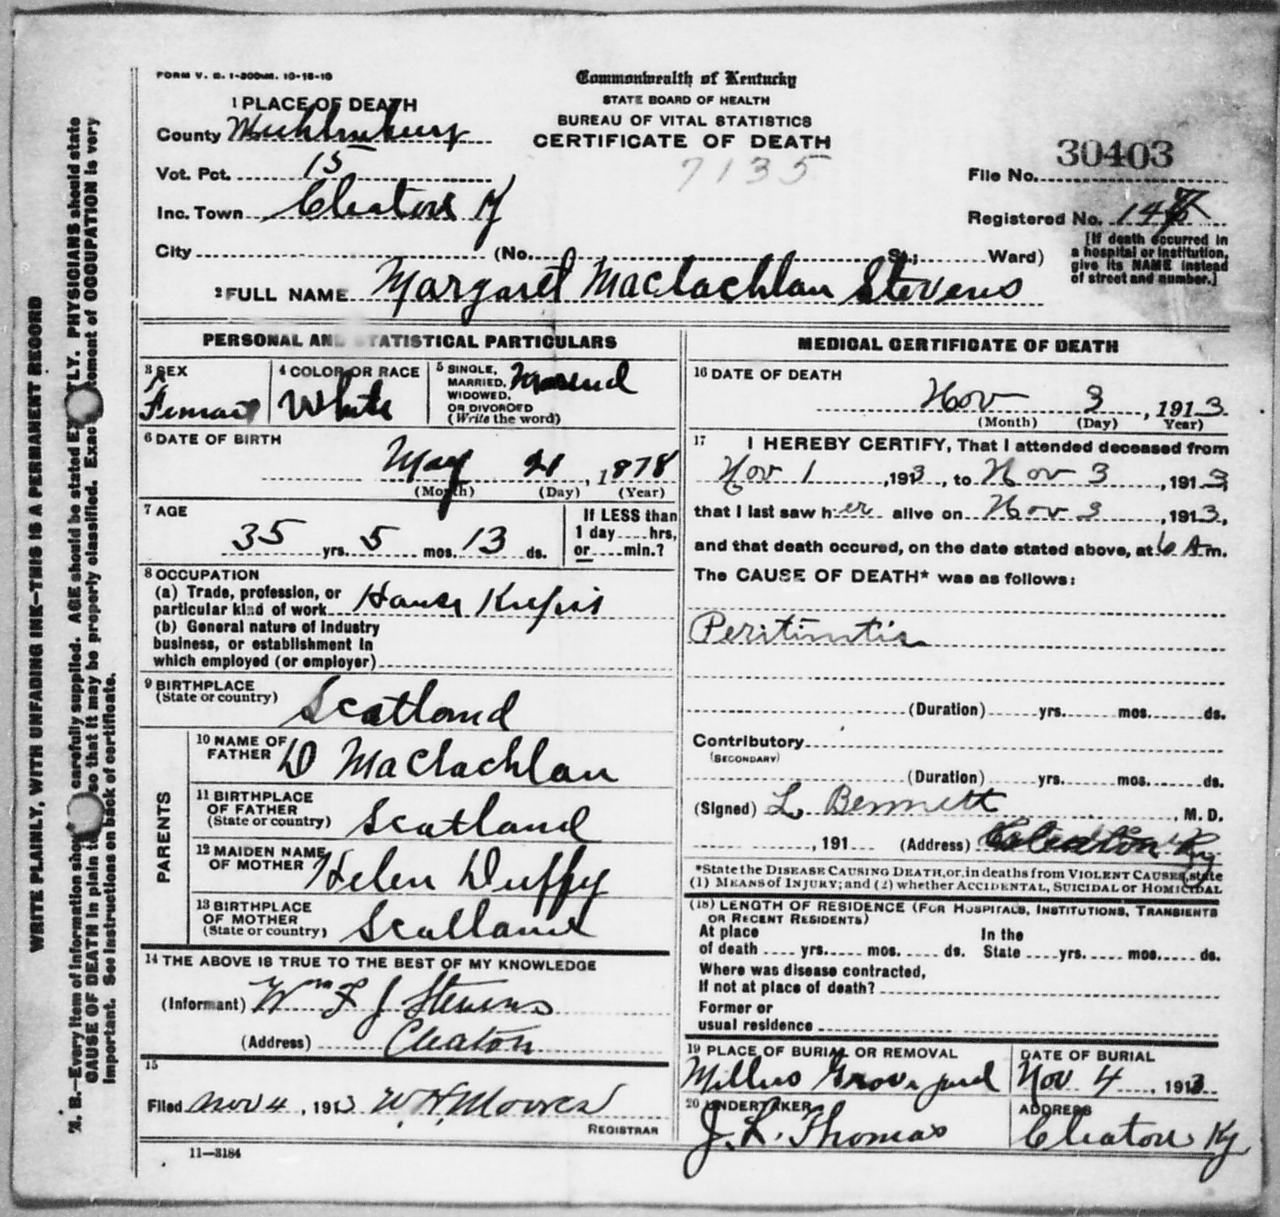 FORM V. S. 1-300M. 10-18-10
Commonwealth of Kentucky
STATE BOARD OF HEALTH
BUREAU OF VITAL STATISTICS
CERTIFICATE OF DEATH
7135
1 PLACE OF DEATH
County Muhlenburg
Vot. Pct. 15
Inc. Town Cleaton Ky
City (No. St.; Ward)
File No. 30403
Registered No. 147
[If death occurred in
a hospital or institution,
give its NAME instead
of street and number.]
2 FULL NAME Margaret Maclachlan Stevens
PERSONAL AND STATISTICAL PARTICULARS
3 SEX
Female
4 COLOR OR RACE
White
5 SINGLE,
MARRIED,
WIDOWED,
OR DIVORCED
(Write the word)
Married
6 DATE OF BIRTH
May 21, 1878
(Month) (Day) (Year)
7 AGE
35 yrs. 5 mos. 13 ds.
If LESS than
1 day hrs,
or min.?
8 OCCUPATION
(a) Trade, profession, or
particular kind of work House Keeping
(b) General nature of industry
business, or establishment in
which employed (or employer)
9 BIRTHPLACE
(State or country) Scotland
PARENTS
10 NAME OF
FATHER D Maclachlan
11 BIRTHPLACE
OF FATHER
(State or country) Scotland
12 MAIDEN NAME
OF MOTHER Helen Duffy
13 BIRTHPLACE
OF MOTHER
(State or country) Scotland
14 THE ABOVE IS TRUE TO THE BEST OF MY KNOWLEDGE
(Informant) Wm F J Stevens
(Address) Cleaton
15
Filed Nov 4, 1913 W. H. Moores
REGISTRAR
11—3184
MEDICAL CERTIFICATE OF DEATH
16 DATE OF DEATH
Nov 3, 1913
(Month) (Day) Year)
17 I HEREBY CERTIFY, That I attended deceased from
Nov 1, 1913, to Nov 3, 1913,
that I last saw her alive on Nov 3, 1913,
and that death occured, on the date stated above, at 6 A m.
The CAUSE OF DEATH* was as follows:
Peritinitis
(Duration) yrs. mos. ds.
Contributory
(SECONDARY)
(Duration) yrs. mos. ds.
(Signed) L. Bennett, M. D.
, 191 (Address) Cleaton Ky
*State the DISEASE CAUSING DEATH, or, in deaths from VIOLENT CAUSES, state
(1) MEANS of INJURY; and (2) whether ACCIDENTAL, SUICIDAL or HOMICIDAL
(18) LENGTH OF RESIDENCE (FOR HOSPITALS, INSTITUTIONS, TRANSIENTS
OR RECENT RESIDENTS)
At place In the
of death yrs. mos. ds. State yrs. mos. ds.
Where was disease contracted,
If not at place of death?
Former or
usual residence
19 PLACE OF BURIAL OR REMOVAL
Millers Grave yard
DATE OF BURIAL
Nov 4, 1913
20 UNDERTAKER
J. L. Thomas
ADDRESS
Cleaton Ky
WRITE PLAINLY, WITH UNFADING INK—THIS IS A PERMANENT RECORD
N. B.—Every item of information should carefully supplied. AGE should be stated EXACTLY. PHYSICIANS should state
CAUSE OF DEATH in plain so that it may be properly classified. Exact statement of OCCUPATION is very
important. See instructions on back of certificate.